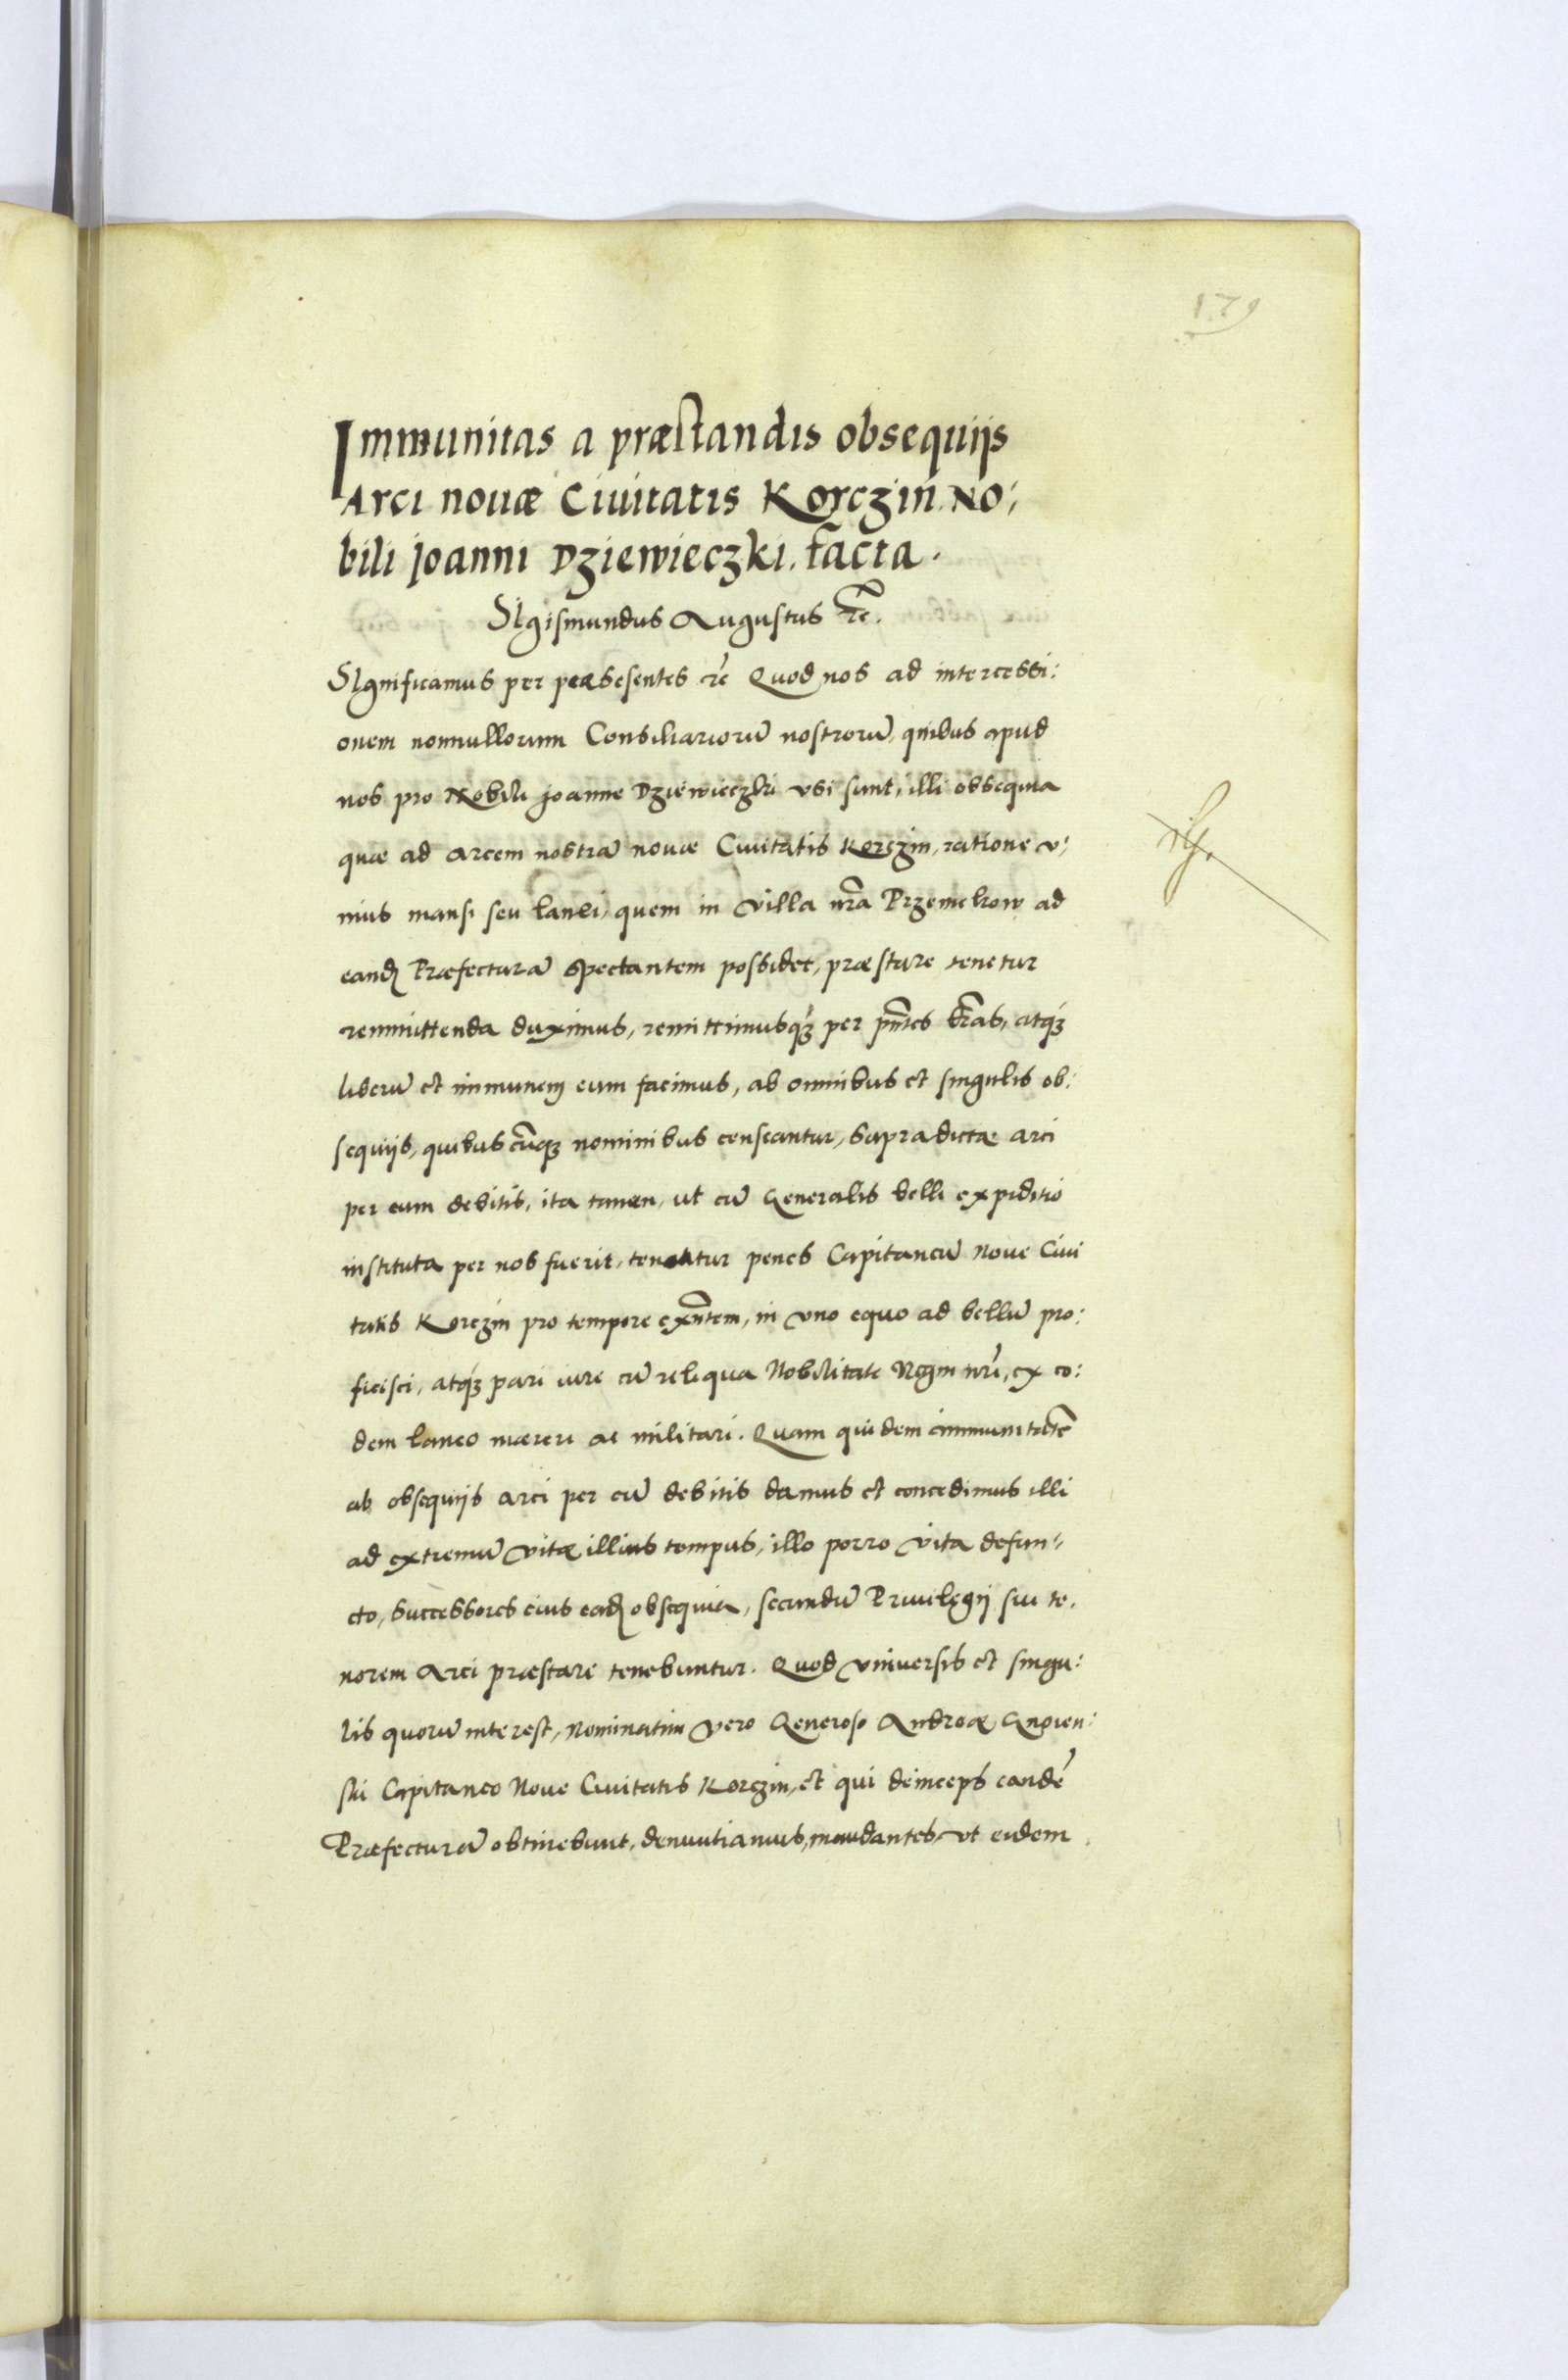 179
Immunitas a præstandis obsequijs
Arci nouæ Ciuitatis Korczin No:
bili Joanni Dziewieczki. facta.
SIgismundus Augustus rc̃.
SIgnificamus per præsesentes rc̃ Quod nos ad intercessi:
onem nonnullorum Consiliariorũ nostrorũ, quibus apud
nos pro Nobili Joanne Dziewieczki vsi sunt, illi obsequia
quæ ad arcem nostrã nouæ Ciuitatis Korczin, ratione v:
nius mansi seu lanei, quem in villa nr̃a Przemekow ad
eandẽ Præfecturã spectantem possidet, præstare tenetur
remmittenda duximus, remittimusq́ꝫ per pñtes lr̃as, atq́ꝫ
liberũ et immunem eum facimus, ab omnibus et singulis ob:
sequijs, quibuscũqꝫ nominibus censeantur, supradictæ arci
per eum debitis, ita tamen, ut cũ Generalis belli expiditio
instituta per nos fuerit, teneatur penes Capitaneũ Noue Ciui
tatis Korczin pro tempore exñtem, in vno equo ad bellũ pro:
ficisci, atq́ꝫ pari iure cũ reliqua Nobilitate Regni nr̃i, ex eo:
dem laneo mæreri ac militari. Quam quidem immunitatẽ
ab obsequijs arci per eũ debitis damus et concedimus illi
ad extremũ vitæ illius tempus, illo porro vita defun-
cto, successores eius eadẽ obsequia, secundũ Priuilegij sui te.
norem Arci præstare tenebuntur. Quod vniuersis et singu:
lis quorũ interest, Nominatim vero Generoso Andreæ Gnoien:
ski Capitaneo Noue Ciuitatis Korczin, et qui deinceps eandẽ
Præfecturã obtinebunt, denuntiamus, mandantes, vt eidem